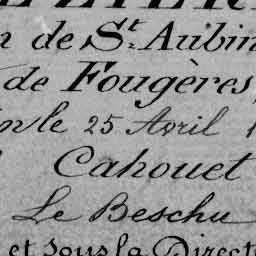 n de St. Aubin
de Fougères,
le 25 Avril
Cahouet
Le Beschu
et sous la Direct